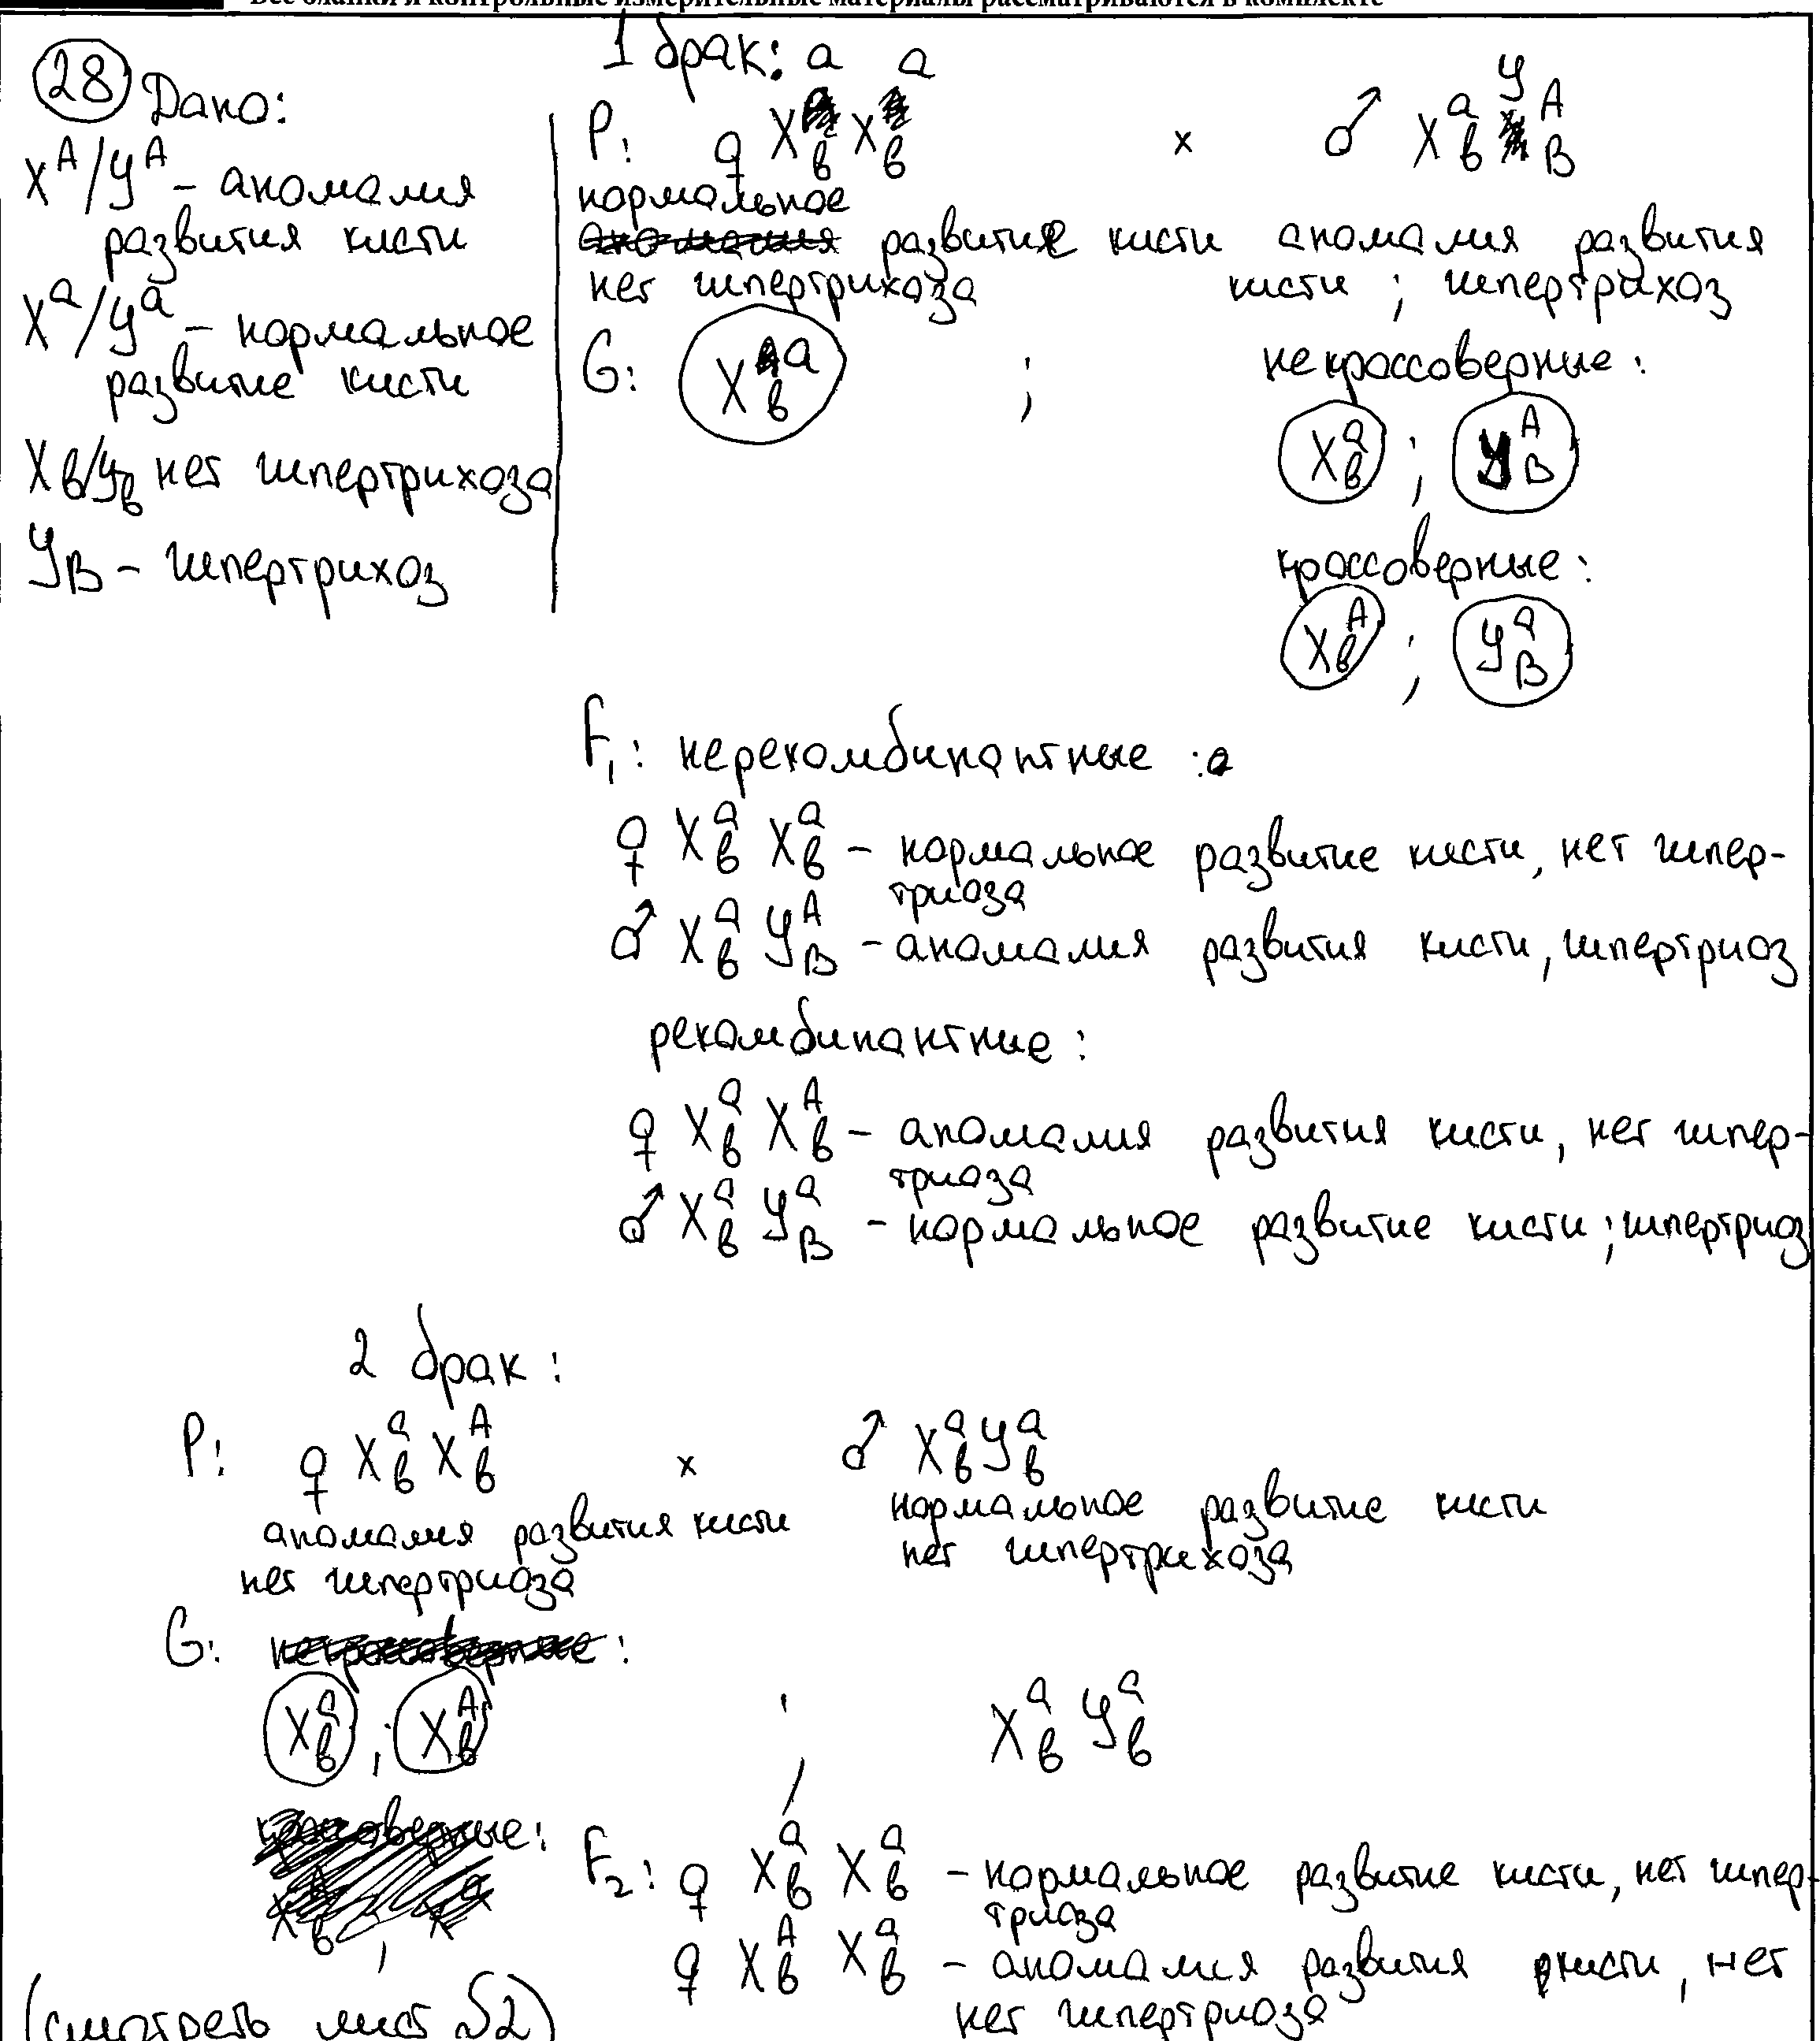 Все бланки и контрольные измерительные материалы рассматриваются в комплекте
28 Дано:
X^A/У^A – аномалия
развития кисти
X^a/У^a – нормальное
развитие кисти
Xв/Ув нет гипертрихоза
У_B – гипертрихоз
1 брак:
P: ♀ X^a_в X^a_в x ♂ X^a_в У^A_B
нормальное
развитие кисти аномалия развития
нет гипертрихоза кисти ; гипертрихоз
G: X^a_в ; некроссоверные:
X^a_в ; У^A_B
кроссоверные:
X^A_в ; У^a_B
F1: нерекомбинантные :
♀ X^a_в X^a_в – нормальное развитие кисти, нет гипер-
триоза
♂ X^a_в У^A_B – аномалия развития кисти, гипертриоз
рекомбинантные :
♀ X^a_в X^A_в – аномалия развития кисти, нет гипер-
триоза
♂ X^a_в У^a_B – нормальное развитие кисти ; гипертриоз
2 брак :
P: ♀ X^a_в X^A_в x ♂ X^a_в У^a_в
аномалия развития кисти нормальное развитие кисти
нет гипертриоза нет гипертрихоза
G: :
X^a_в ; X^A_в ; X^a_в У^a_в
F2: ♀ X^a_в X^a_в – нормальное развитие кисти, нет гипер-
триоза
♀ X^A_в X^a_в – аномалия развития кисти, нет
нет гипертриоза
(смотреть лист №2)